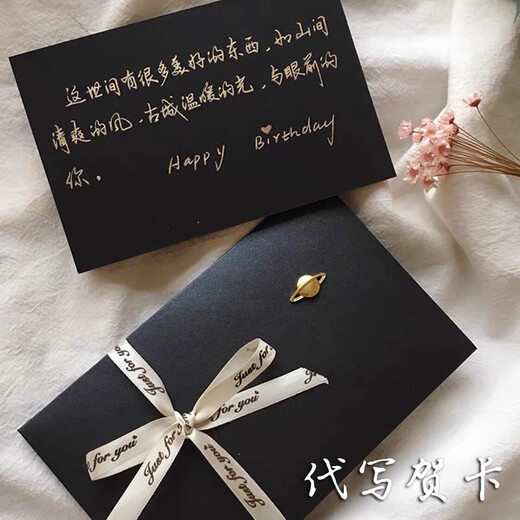 这世间有很多美好的东西，如山间
清爽的风、古城温暖的光，与眼前的
你。 Happy Birthday
Just for you
Just for you
Just for
Just for you
for you
Just for you
代写贺卡